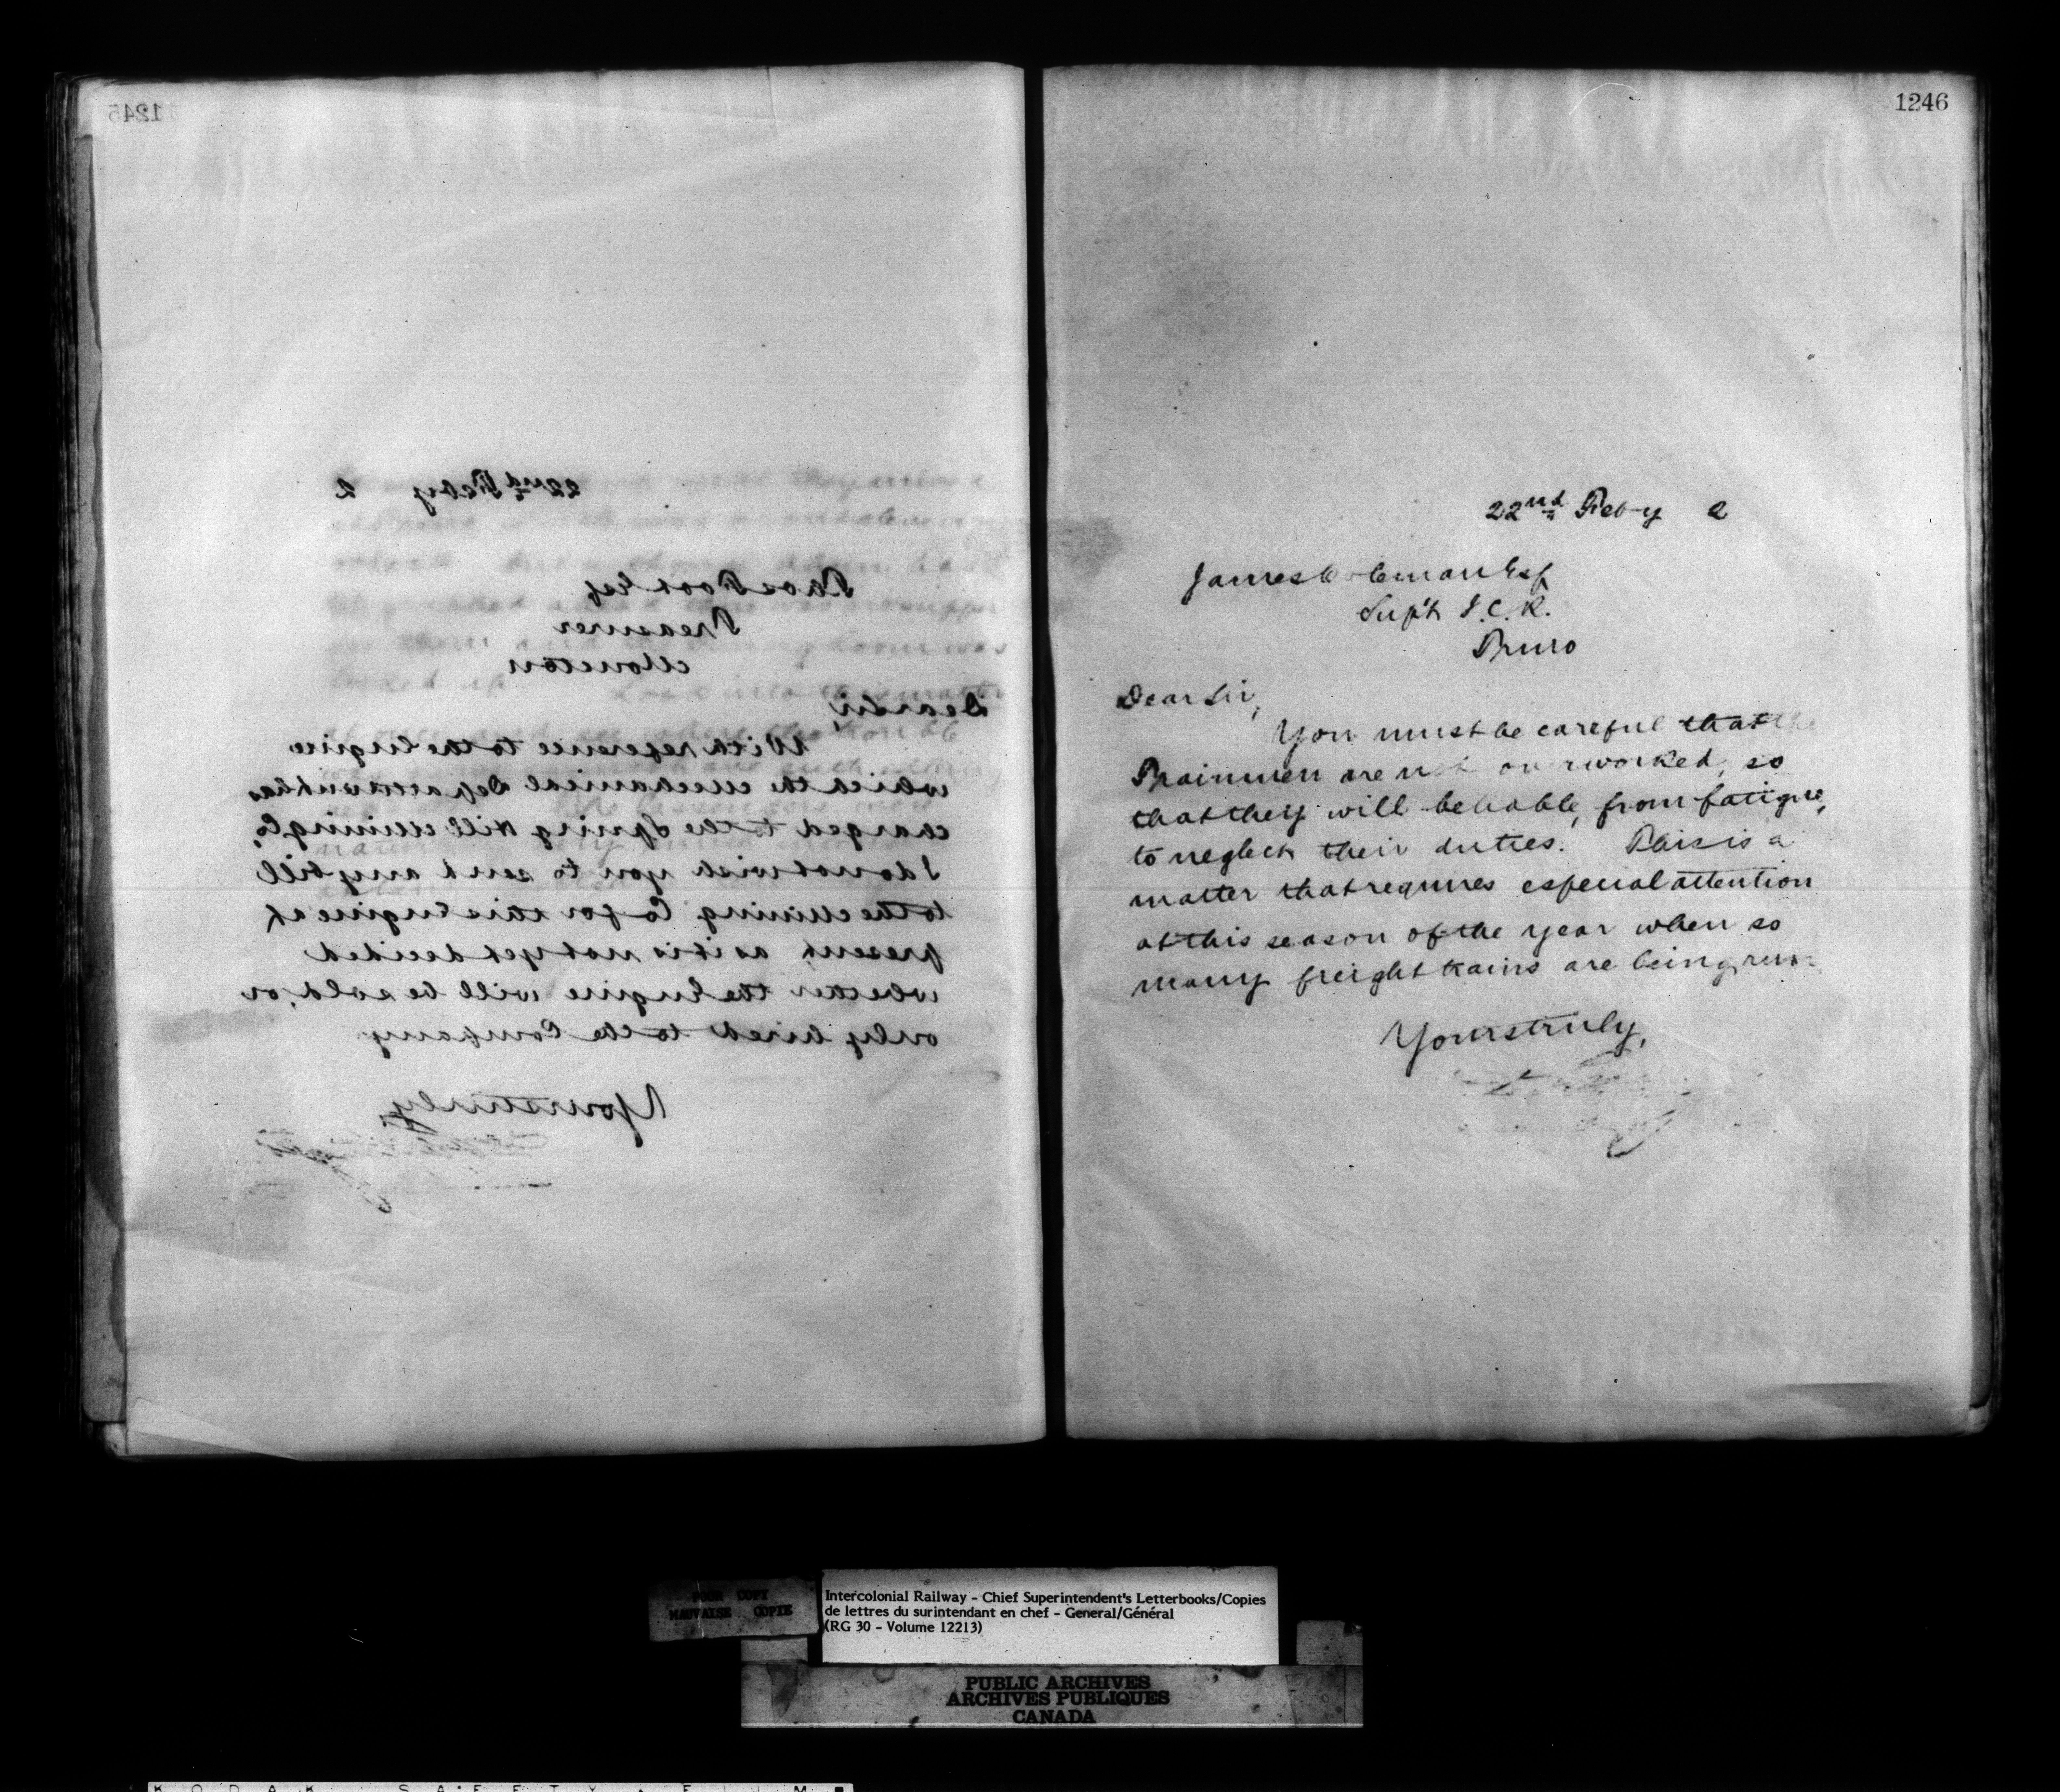 1245
22nd Feby 2
Thos Foot Esq
Treasurer
Moncton
Dear Sir,
With reference to the Engine
which the Mechanical Department has
charged to the Spring Hill Mining Co,
I do not wish you to send any bill
to the Mining Co for this Engine at
present, as it is not yet decided
whether the Engine will be sold, or
only hired to the Company
Yours truly,
1246
22nd Feby 2
James Coleman Esq
Sup't I.C.R.
Truro
Dear Sir,
You must be careful that the
Trainmen are not overworked, so
that they will be liable, from fatigue,
to neglect their duties. This is a
matter that requires especial attention
at this season of the year when so
many freight trains are being run
Yours truly,
POOR COPY
MAUVAISE COPIE
Intercolonial Railway - Chief Superintendent's Letterbooks/Copies
de lettres du surintendant en chef - General/Général
(RG 30 - Volume 12213)
PUBLIC ARCHIVES
ARCHIVES PUBLIQUES
CANADA
KODAK SAFETY FILM